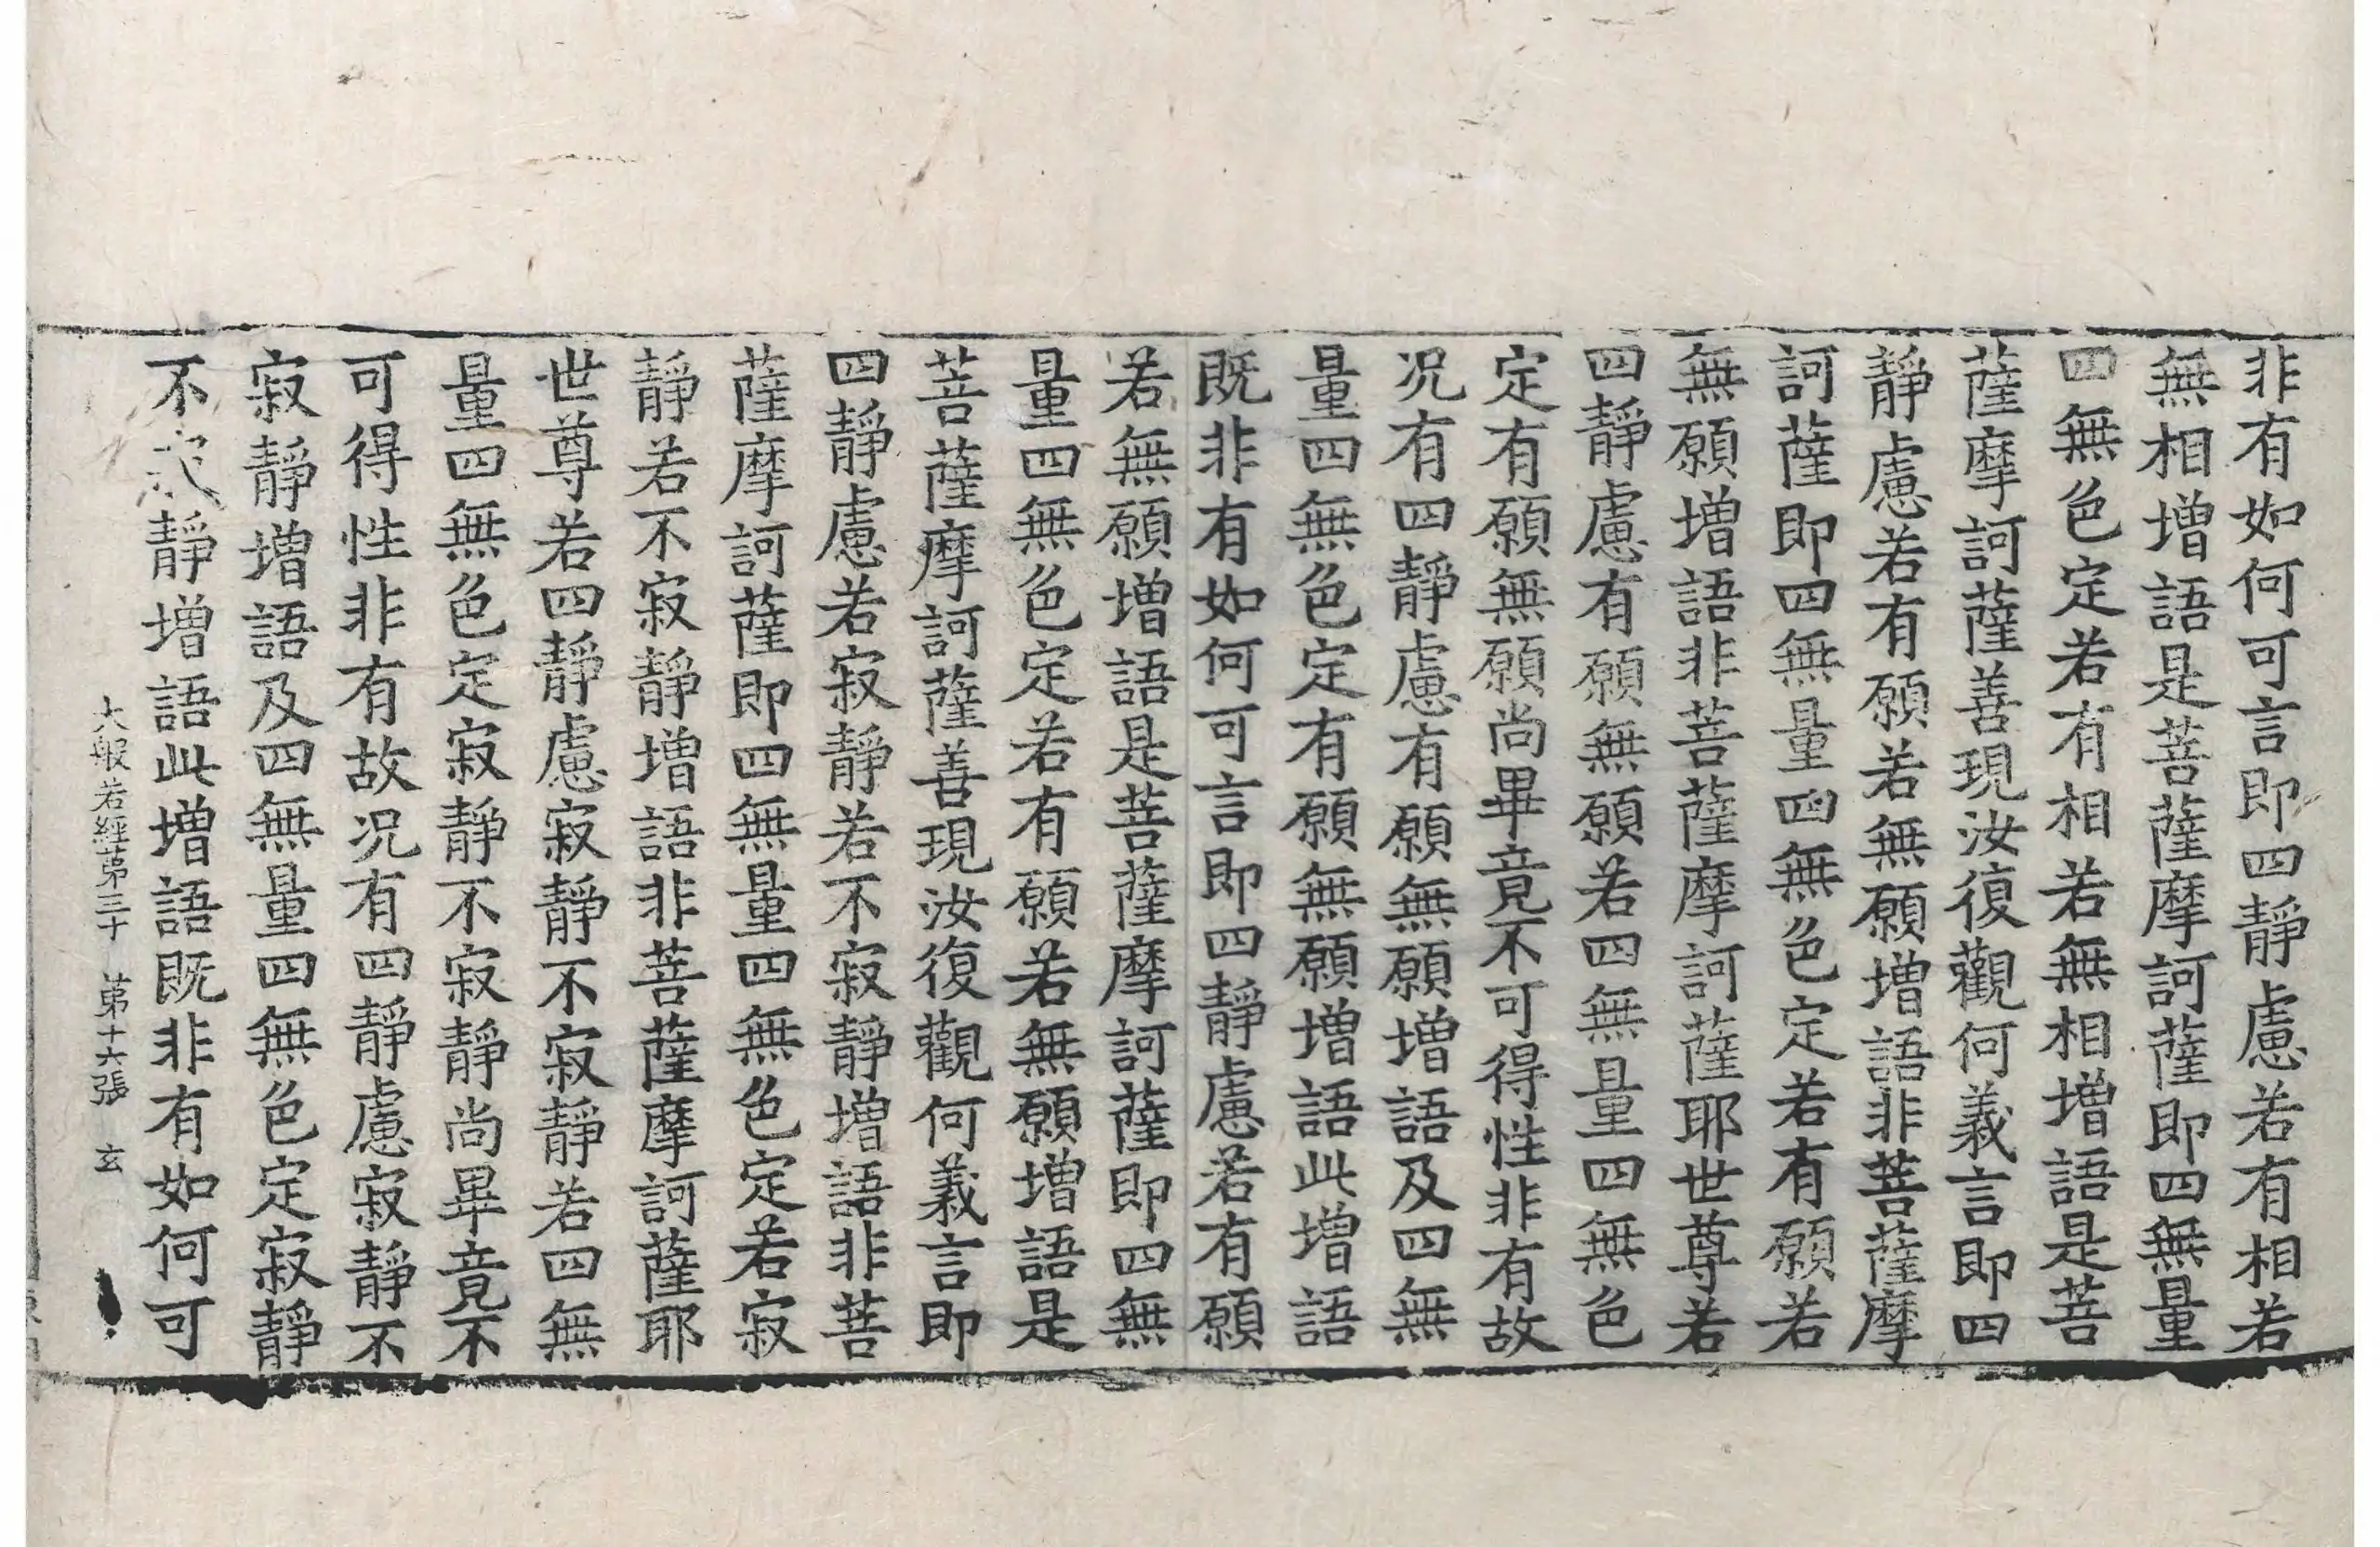 非有如何可言即四靜慮若有相若
無相增語是菩薩摩訶薩即四無量
四無色定若有相若無相增語是菩
薩摩訶薩善現汝復觀何義言即四
靜慮若有願若無願增語非菩薩摩
訶薩即四無量四無色定若有願若
無願增語非菩薩摩訶薩耶世尊若
四靜慮有願無願若四無量四無色
定有願無願尚畢竟不可得性非有故
况有四靜慮有願無願增語及四無
量四無色定有願無願增語此增語
既非有如何可言即四靜慮若有願
若無願增語是菩薩摩訶薩即四無
量四無色定若有願若無願增語是
菩薩摩訶薩善現汝復觀何義言即
四靜慮若寂靜若不寂靜增語非菩
薩摩訶薩即四無量四無色定若寂
靜若不寂靜增語非菩薩摩訶薩耶
世尊若四靜慮寂靜不寂靜若四無
量四無色定寂靜不寂靜尚畢竟不
可得性非有故况有四靜慮寂靜不
寂靜增語及四無量四無色定寂靜
不寂靜增語此增語既非有如何可
大般若經苐三十 苐十六張 玄